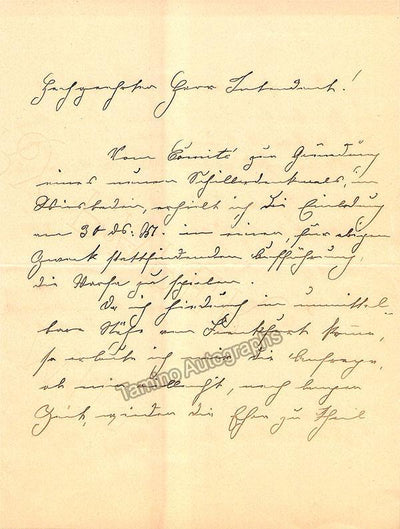 Hochgeehrter Herr Intendant!
Vom Comité zur Gründung
eines neuen Schillerdenkmals, in
Wiesbaden, erhielt ich die Einladung
am 30 ds. Mt. in einer, für obigen
Zweck stattfindenden Aufführung,
die zu spielen.
Da ich hiedurch in unmittel-
bare Nähe von Frankfurt komme,
so erlaube ich mir die Anfrage,
ob mir vielleicht, nach langer
Zeit, wieder die Ehre zu Theil
Tamino Autographs